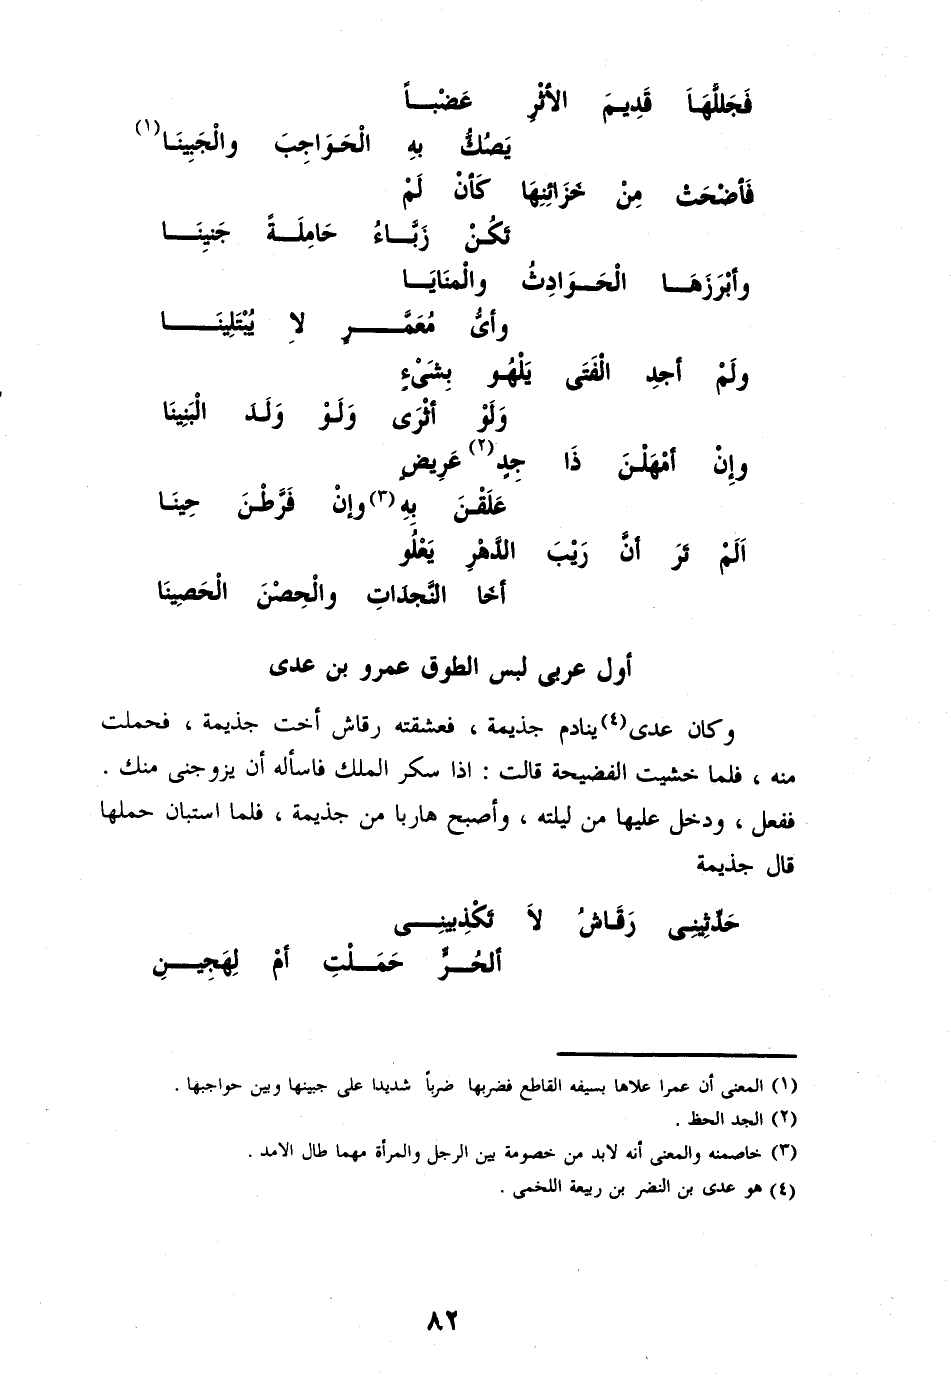 فَجَللَّهَا قَدِيمَ الأثْرِ عَضْبـاً
يَصُكُّ بهِ الْحَوَاجِبَ والْجَبِينَـا(١)
فَأضْحَتْ مِنْ خَزَائِنِهَا كَأنْ لَمْ
تَكُـنْ زَبَّـاءُ حَامِلَـةً جَنِينَـا
وأبْرَزَهَـا الْحَـوَادِثُ والْمنَايَـا
وأىُّ مُعَمَّـرٍ لاِ يُبْتَلِينَـا
ولَمْ أجدِ الْفَتَى يَلْهُـو بِشَىْءٍ
وَلَوْ أثْرَى وَلَـوْ وَلَـدَ الْبَنِينَا
وإِنْ أمْهَلْـنَ ذَا جِدٍ(٢) عَرِيضٍ
عَلَقْـنَ بِهِ(٣) وإنْ فَرَّطْـنَ حِينَـا
اَلَمْ تَرَ أنَّ رَيْبَ الدَّهْرِ يَعْلُو
أخَا النَّجدَاتِ والْحِصْنَ الْحَصِينَا
أول عربى لبس الطوق عمرو بن عدى
وكان عدى(٤) ينادم جذيمة ، فعشقته رقاش أخت جذيمة ، فحملت
منه ، فلما خشيت الفضيحة قالت : اذا سكر الملك فاسأله أن يزوجنى منك .
ففعل ، ودخل عليها من ليلته ، وأصبح هاربا من جذيمة ، فلما استبان حملها
قال جذيمة
حَدِّثِينِـى رَقَـاشُ لاَ تَكْذِبينِـى
ألحُـرٍّ حَمَـلْتِ أمْ لِهَجِيـنِ
(١) المعنى أن عمرا علاها بسيفه القاطع فضربها ضرباً شديدا على جبينها وبين حواجبها .
(٢) الجد الحظ .
(٣) خاصمنه والمعنى أنه لابد من خصومة بين الرجل والمرأة مهما طال الامد .
(٤) هو عدى بن النضر بن ربيعة اللخمى .
٨٢